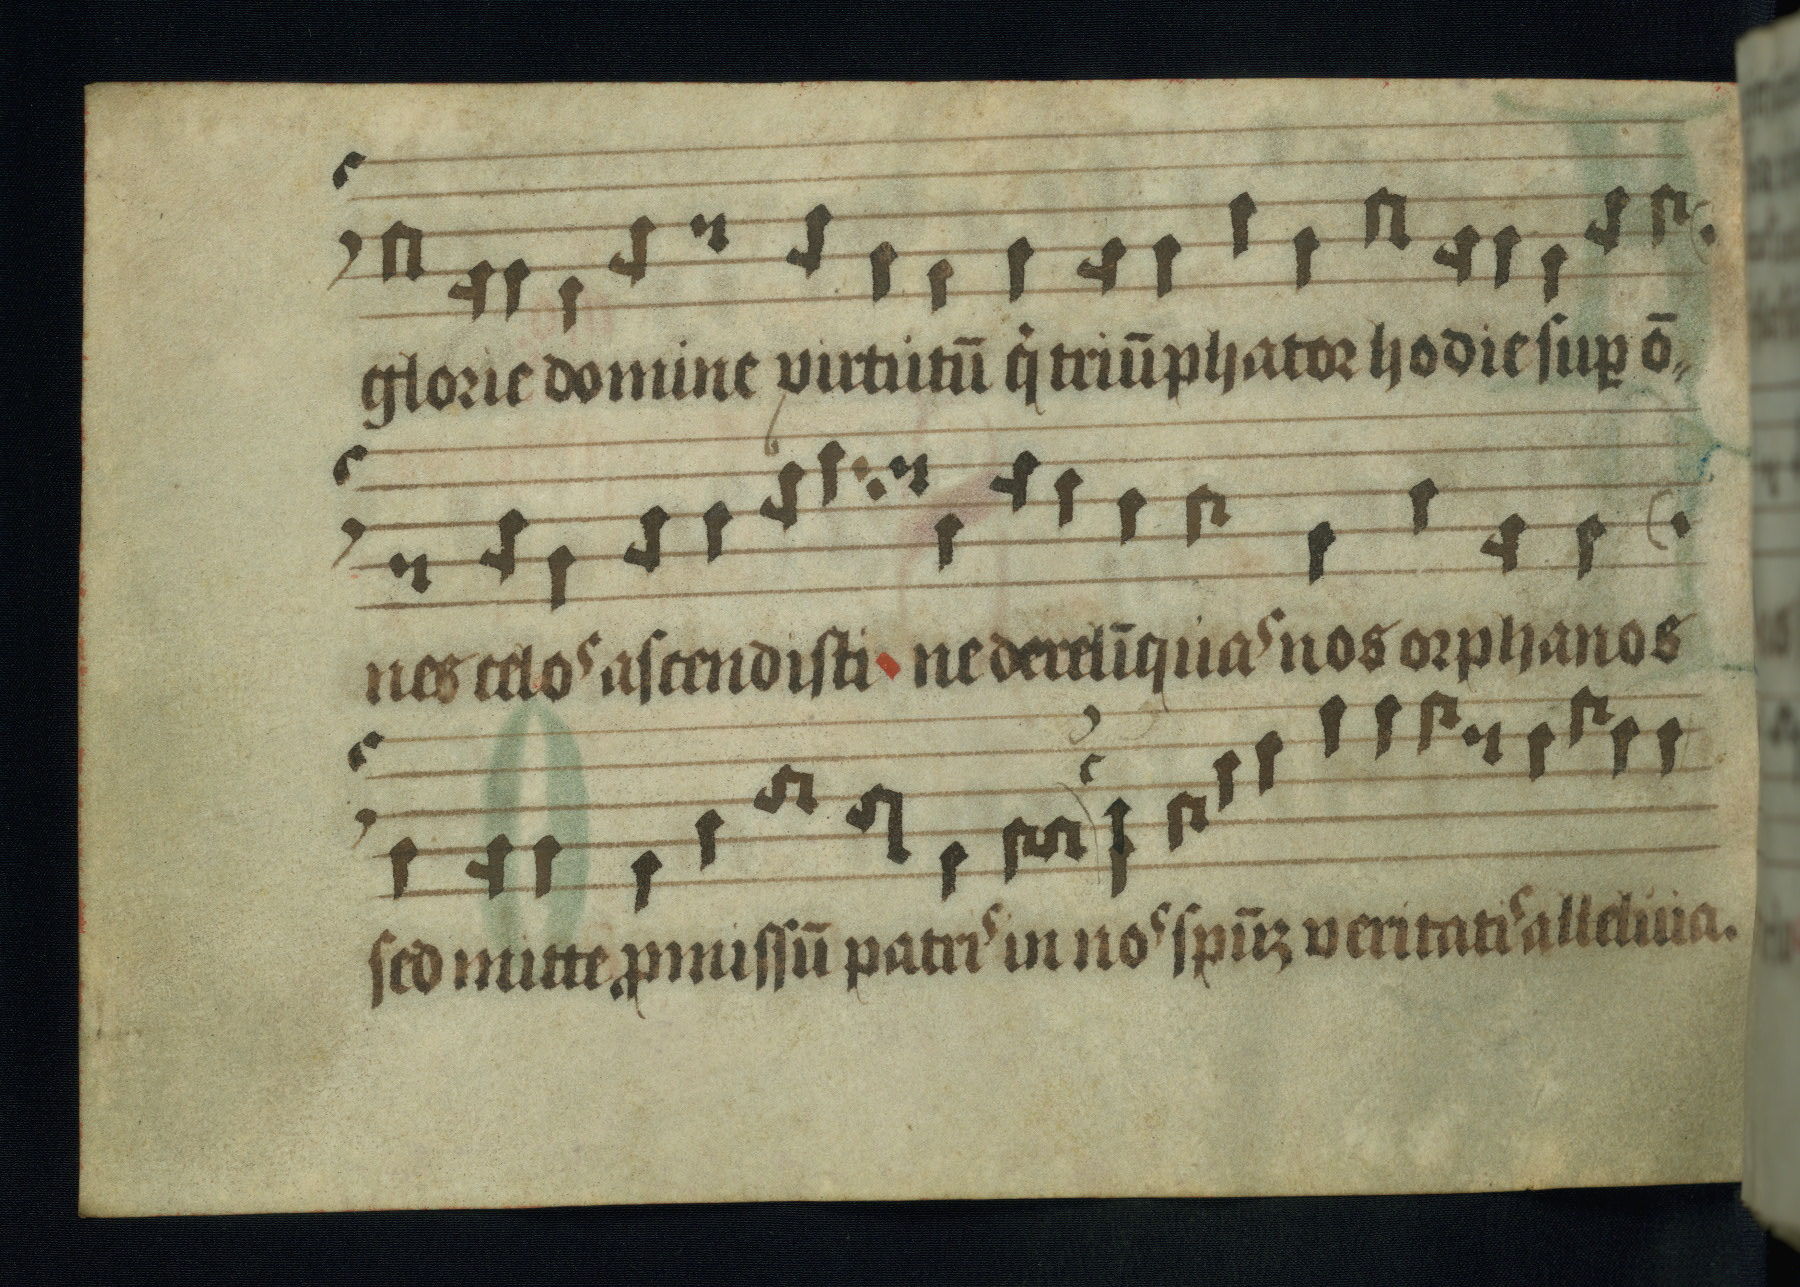 glorie domine virtutū q̇ triūphator hodie suꝑ ō⸗
nes celos ascendisti · ne derelīquas nos orphanos
sed mitte ꝓmissū patris in nos spūꝫ veritatis alleluia.